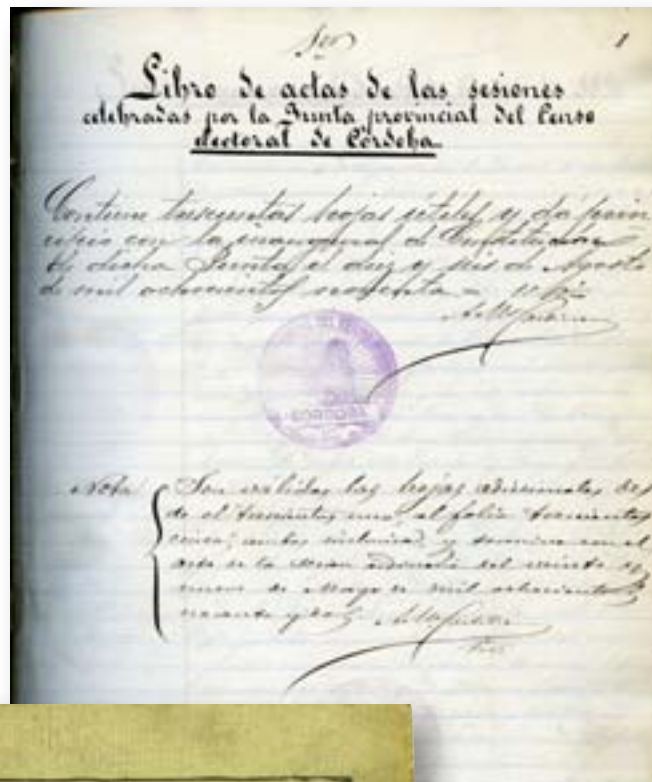 1
Libro de actas de las sesiones
celebradas por la Junta provincial del Censo
electoral de Córdoba.
Contiene trescientas hojas útiles y dá prin
cipio con la inaugural de Constitución
de dicha Junta el diez y seis de Agosto
de mil ochocientos noventa =
CORDOBA
Nota
Son válidas las hojas adicionales des
de el trescientos uno al folio trescientos
cinco, ambos inclusive, y termina con el
acta de la sesion ordinaria del veinte y
nueve de Mayo de mil ochocientos
noventa y dos